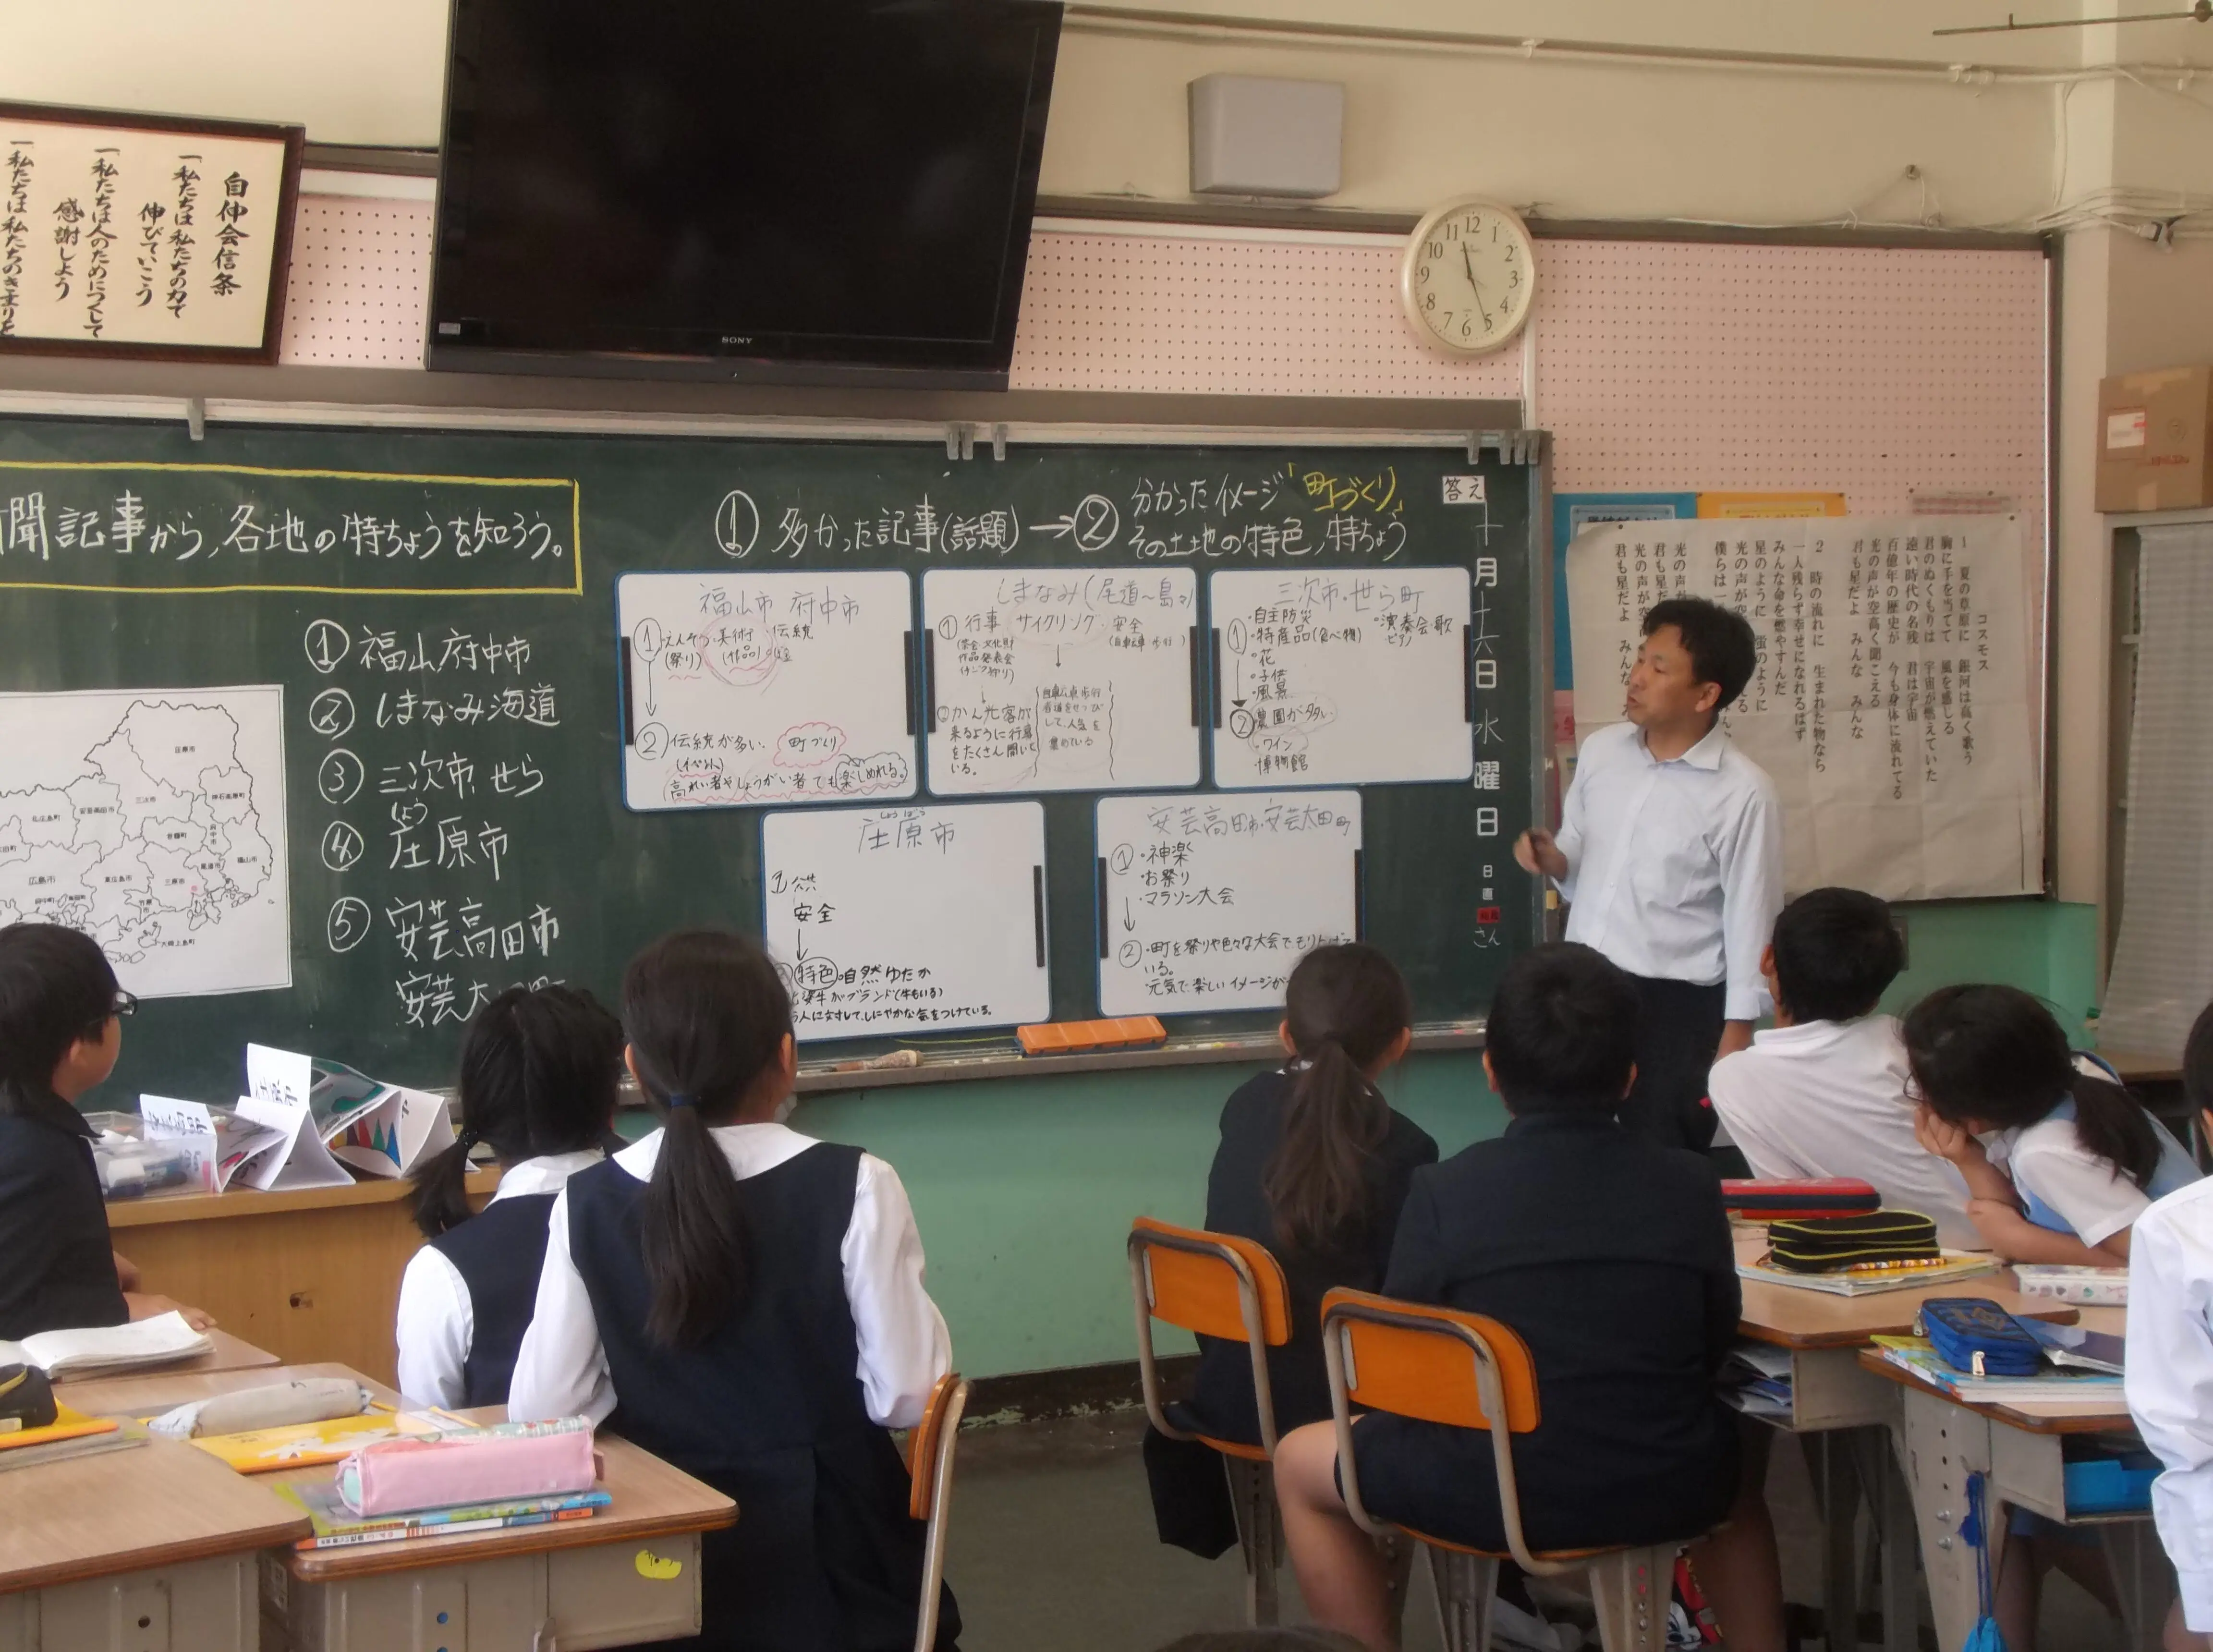 自伸会信条
一私たちは私たちの力で
伸びていこう
一私たちは人のためにつくして
感謝しよう
一私たちは私たちのきまりを
SONY
12
1
2
3
4
5
6
7
8
9
10
11
聞記事から,各地の特ちょうを知ろう。
①福山府中市
②しまなみ海道
③三次市,せら
しょう
④庄原市
⑤安芸高田市
安芸太
①多かった記事(話題)→②
分かったイメージ「町づくり」
その土地の特色,特ちょう
福山市 府中市
①えんそう・美術・伝統
(祭り)(作品)
②伝統が多い.町づくり
(イベント)
高れい者やしょうがい者でも楽しめれる。
しまなみ(尾道〜島々)
①行事 サイクリング・安全
作品発表会
②かん光客が
来るように行事
をたくさん開いて
いる。
して,人気を
集めている
三次市・世ら町
①・自主防災
・特産品(食べ物)
・花
・子供
・風景
・演奏会・歌
ピアノ
②農園が多い
・ワイン
・博物館
しょうばら
庄原市
安全
特色・自然ゆたか
牛がブランド(牛もいる)
安芸高田市・安芸太田町
①・神楽
・お祭り
・マラソン大会
②・町を祭りや色々な大会でもり上げて
いる。
元気で楽しいイメージが
答え
十月十六日水曜日
日直
さん
庄原市
三次市
神石高原町
安芸高田市
北広島町
世羅町
府中市
福山市
尾道市
三原市
東広島市
広島市
竹原市
大崎上島町
コスモス
1 夏の草原に 銀河は高く歌う
胸に手を当てて 風を感じる
君のぬくもりは 宇宙が燃えていた
遠い時代の名残 君は宇宙
百億年の歴史が 今も身体に流れてる
光の声が空高く聞こえる
君も星だよ みんな みんな
2 時の流れに 生まれた物なら
一人残らず幸せになれるはず
みんな命を燃やすんだ
星のように 蛍のように
光の声が空
僕らは一
光の声が
君も星だ
光の声が空高
君も星だよ みんな